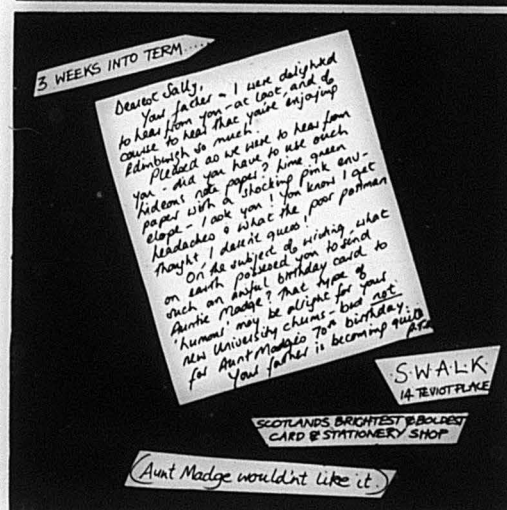 3 WEEKS INTO TERM.....
Dearest Sally,
Your father & I were delighted
to hear from you - at last, and of
course to hear that you're enjoying
Edinburgh so much.
Pleased as we were to hear from
you - did you have to use such
hideous note paper? Lime green
paper with a shocking pink env-
elope - I ask you! You know I get
headaches & what the poor postman
thought, I daren't guess!
On the subject of writing, what
on earth possessed you to send
such an awful birthday card to
Auntie Madge? That type of
'humour' may be alright for your
new University chums - but not
for Aunt Madge's 70th birthday.
Your father is becoming quite
P.T.O.
S·W·A·L·K·
14 TEVIOT PLACE
SCOTLANDS BRIGHTEST & BOLDEST
CARD & STATIONERY SHOP
(Aunt Madge wouldn't like it.)